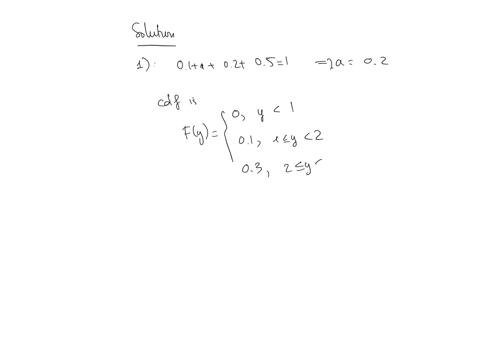 Solution
1): 0.1+a+0.2+0.5=1 ⇒a=0.2
cdf is
0, y < 1
F(y)= { 0.1, 1≤y<2
0.3, 2≤y